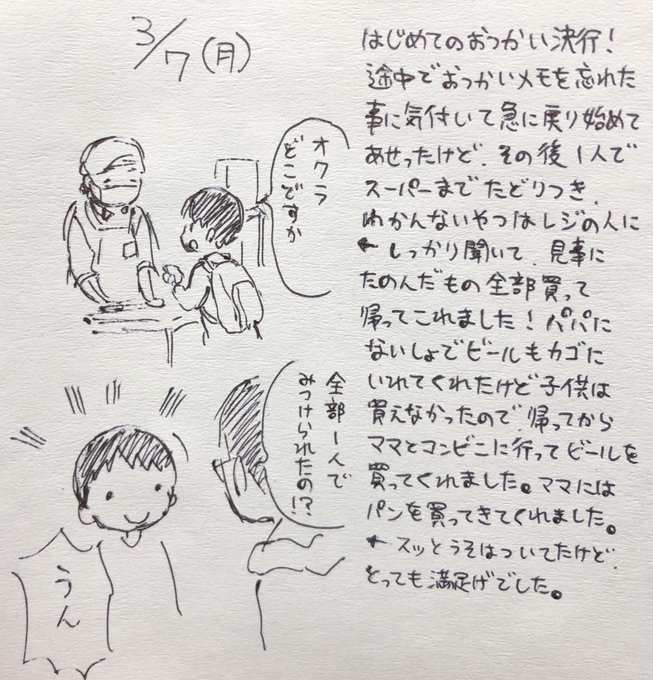 3/7(月)
はじめてのおつかい決行!
途中でおつかいメモを忘れた
事に気付いて急に戻り始めて
あせったけど、その後1人で
スーパーまでたどりつき、
わかんないやつはレジの人に
←しっかり聞いて、見事に
たのんだもの全部買って
帰ってこれました!パパに
ないしょでビールもカゴに
いれてくれたけど子供は
買えなかったので帰ってから
ママとコンビニに行ってビールを
買ってくれました。ママには
パンを買ってきてくれました。
←スッとうそはついてたけど、
とっても満足げでした。
オクラ
どこですか
全部1人で
みつけられたの!?
うん